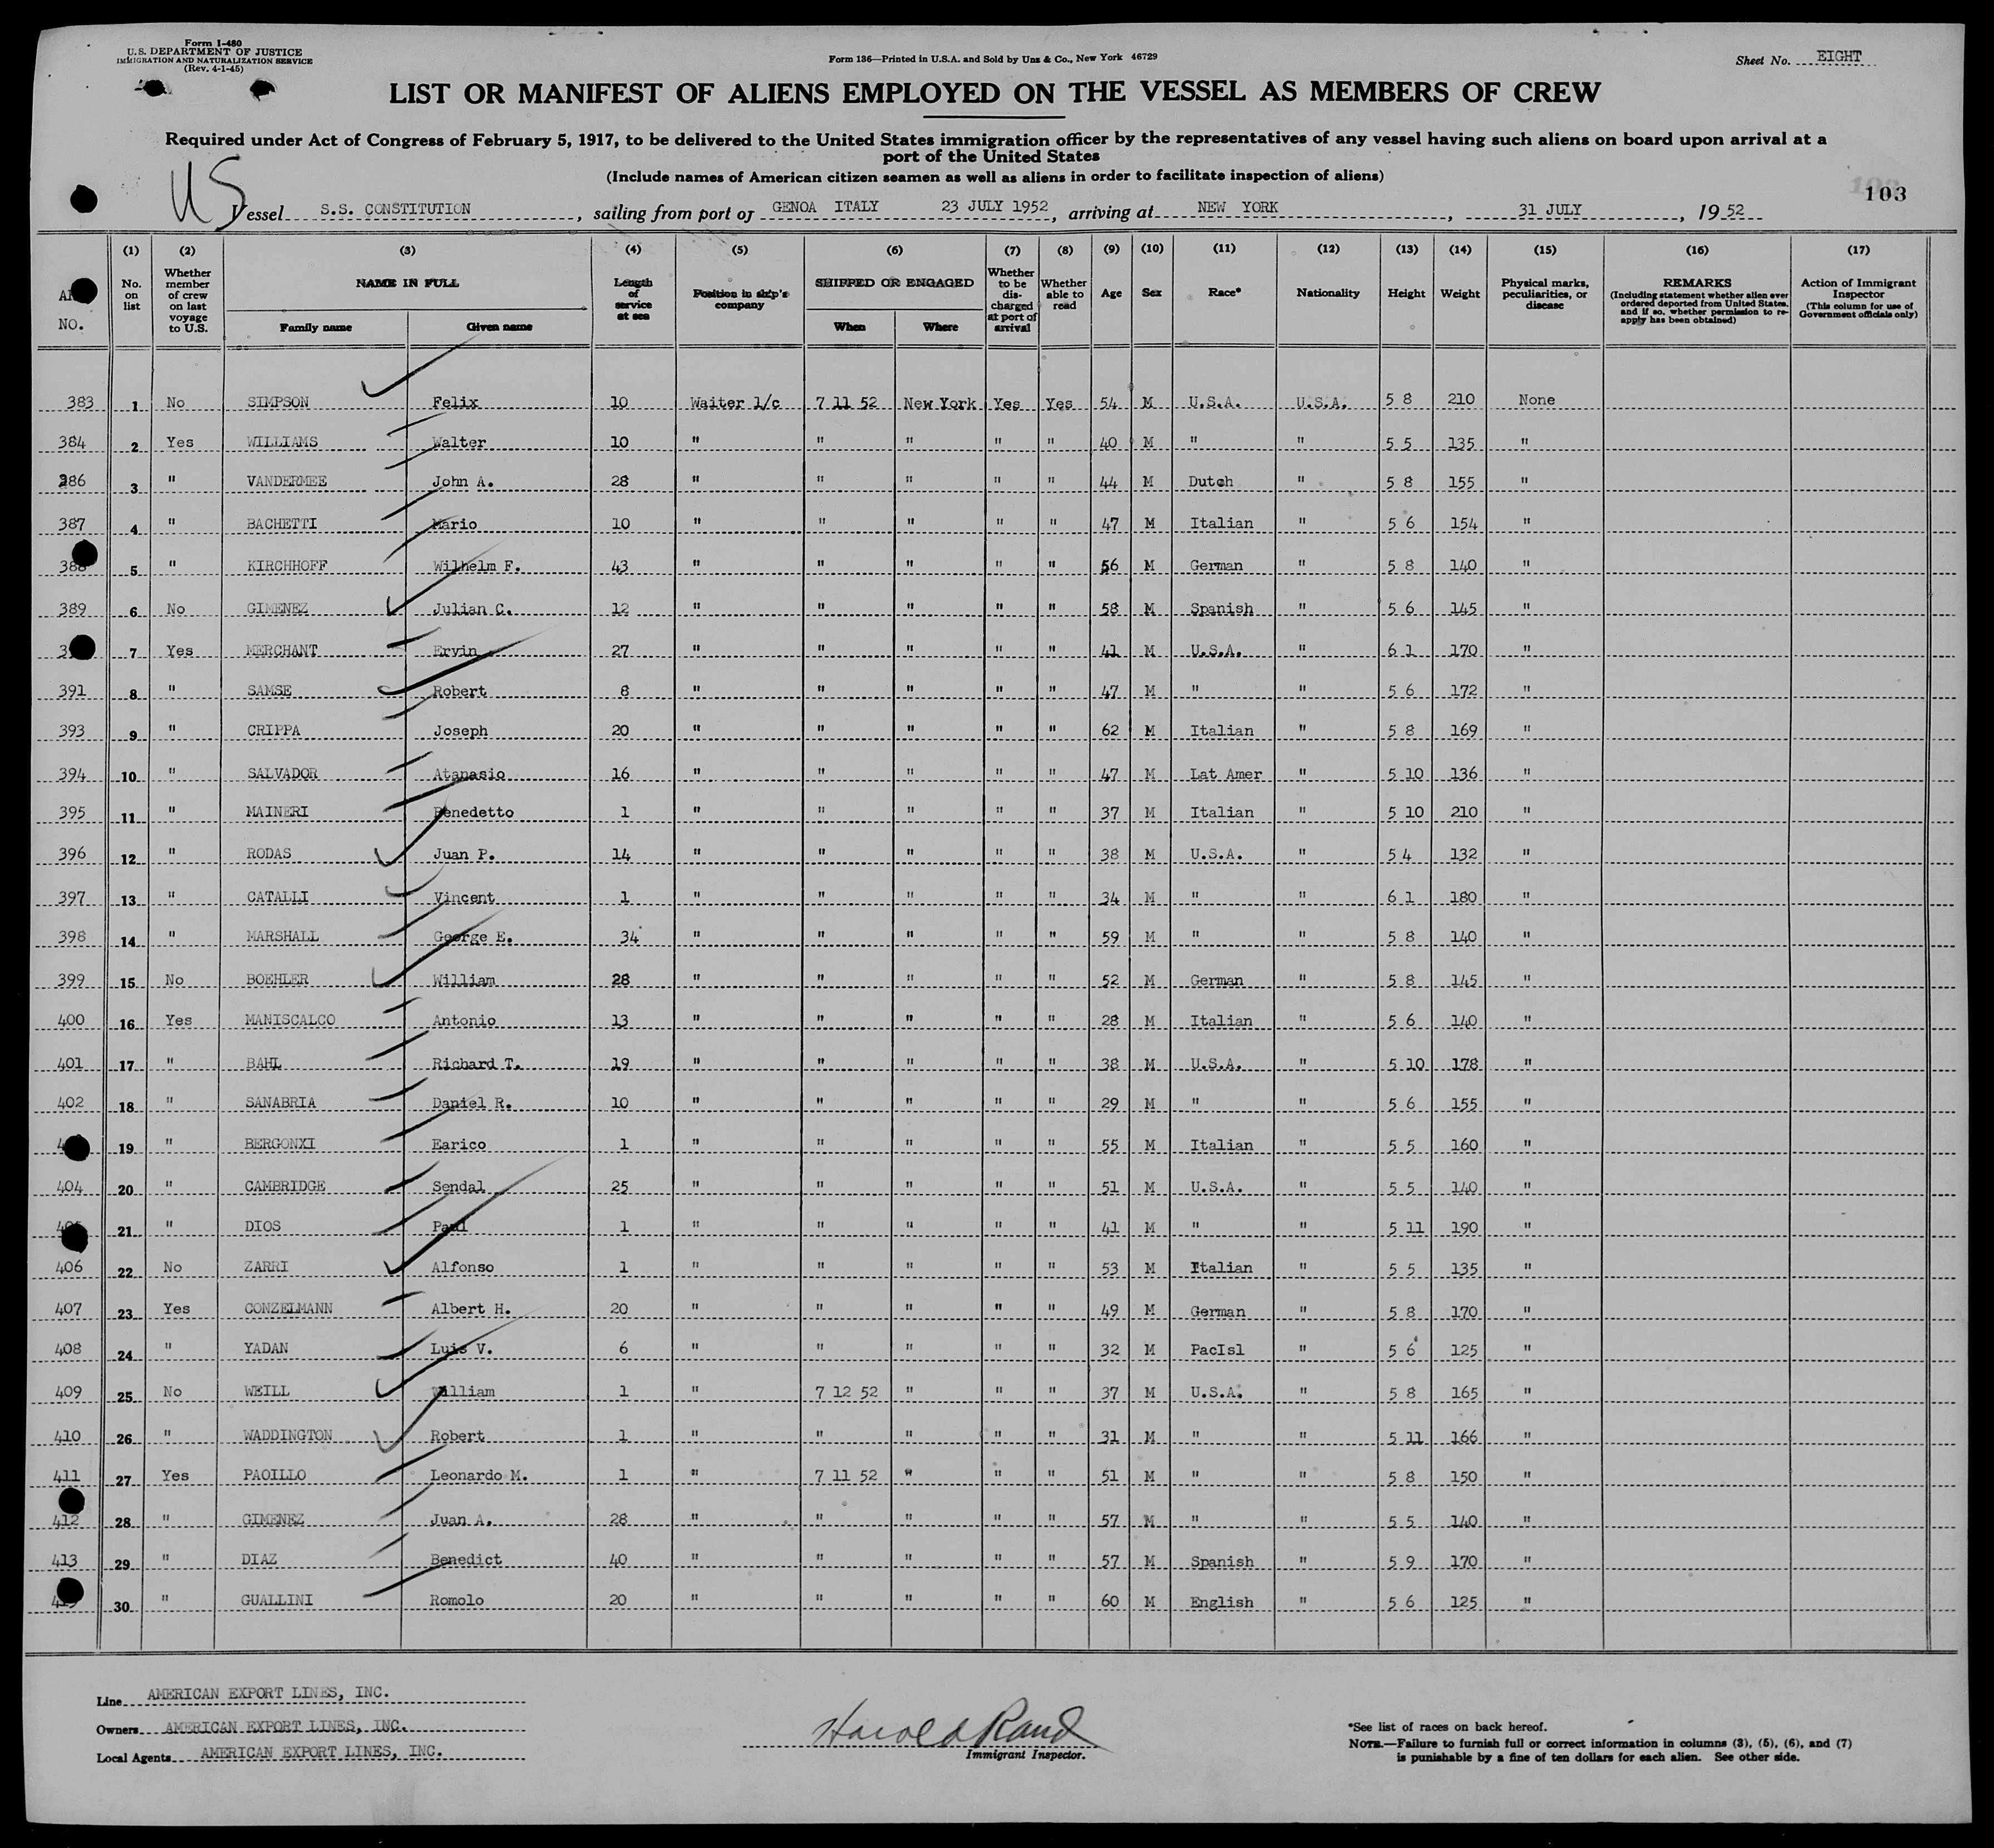 Form I-480
U.S. DEPARTMENT OF JUSTICE
IMMIGRATION AND NATURALIZATION SERVICE
(Rev. 4-1-45)
Form 136—Printed in U.S.A. and Sold by Unz & Co., New York 46729
Sheet No. EIGHT
LIST OR MANIFEST OF ALIENS EMPLOYED ON THE VESSEL AS MEMBERS OF CREW
Required under Act of Congress of February 5, 1917, to be delivered to the United States immigration officer by the representatives of any vessel having such aliens on board upon arrival at a
port of the United States
(Include names of American citizen seamen as well as aliens in order to facilitate inspection of aliens)
103
US
Vessel S.S. CONSTITUTION, sailing from port of GENOA ITALY 23 JULY 1952, arriving at NEW YORK, 31 JULY, 19 52
(1) (2) (3) (4) (5) (6) (7) (8) (9) (10) (11) (12) (13) (14) (15) (16) (17)
NO. No. on list Whether member of crew on last voyage to U.S. NAME IN FULL Family name Given name Length of service at sea Position in ship's company SHIPPED OR ENGAGED When Where Whether to be discharged at port of arrival Whether able to read Age Sex Race* Nationality Height Weight Physical marks, peculiarities, or disease REMARKS (Including statement whether alien ever ordered deported from United States, and if so, whether permission to re-apply has been obtained) Action of Immigrant Inspector (This column for use of Government officials only)
383 1 No SIMPSON Felix 10 Waiter 1/c 7 11 52 New York Yes Yes 54 M U.S.A. U.S.A. 5 8 210 None
384 2 Yes WILLIAMS Walter 10 " " " " " 40 M " " 5 5 135 "
386 3 " VANDERMEE John A. 28 " " " " " 44 M Dutch " 5 8 155 "
387 4 " BACHETTI Mario 10 " " " " " 47 M Italian " 5 6 154 "
388 5 " KIRCHHOFF Wilhelm F. 43 " " " " " 56 M German " 5 8 140 "
389 6 No GIMENEZ Julian C. 12 " " " " " 58 M Spanish " 5 6 145 "
7 Yes MERCHANT Ervin 27 " " " " " 41 M U.S.A. " 6 1 170 "
391 8 " SAMSE Robert 8 " " " " " 47 M " " 5 6 172 "
393 9 " CRIPPA Joseph 20 " " " " " 62 M Italian " 5 8 169 "
394 10 " SALVADOR Atanasio 16 " " " " " 47 M Lat Amer " 5 10 136 "
395 11 " MAINERI Benedetto 1 " " " " " 37 M Italian " 5 10 210 "
396 12 " RODAS Juan P. 14 " " " " " 38 M U.S.A. " 5 4 132 "
397 13 " CATALLI Vincent 1 " " " " " 34 M " " 6 1 180 "
398 14 " MARSHALL George E. 34 " " " " " 59 M " " 5 8 140 "
399 15 No BOEHLER William 28 " " " " " 52 M German " 5 8 145 "
400 16 Yes MANISCALCO Antonio 13 " " " " " 28 M Italian " 5 6 140 "
401 17 " BAHL Richard T. 19 " " " " " 38 M U.S.A. " 5 10 178 "
402 18 " SANABRIA Daniel R. 10 " " " " " 29 M " " 5 6 155 "
19 " BERGONXI Earico 1 " " " " " 55 M Italian " 5 5 160 "
404 20 " CAMBRIDGE Sendal 25 " " " " " 51 M U.S.A. " 5 5 140 "
405 21 " DIOS Paul 1 " " " " " 41 M " " 5 11 190 "
406 22 No ZARRI Alfonso 1 " " " " " 53 M Italian " 5 5 135 "
407 23 Yes CONZELMANN Albert H. 20 " " " " " 49 M German " 5 8 170 "
408 24 " YADAN Luis V. 6 " " " " " 32 M PacIsl " 5 6 125 "
409 25 No WEILL William 1 " 7 12 52 " " " 37 M U.S.A. " 5 8 165 "
410 26 " WADDINGTON Robert 1 " " " " " 31 M " " 5 11 166 "
411 27 Yes PAOILLO Leonardo M. 1 " 7 11 52 " " " 51 M " " 5 8 150 "
412 28 " GIMENEZ Juan A. 28 " " " " " 57 M " " 5 5 140 "
413 29 " DIAZ Benedict 40 " " " " " 57 M Spanish " 5 9 170 "
30 " GUALLINI Romolo 20 " " " " " 60 M English " 5 6 125 "
Line AMERICAN EXPORT LINES, INC.
Owners AMERICAN EXPORT LINES, INC.
Local Agents AMERICAN EXPORT LINES, INC.
Harold Rand
Immigrant Inspector.
*See list of races on back hereof.
NOTE.—Failure to furnish full or correct information in columns (3), (5), (6), and (7)
is punishable by a fine of ten dollars for each alien. See other side.